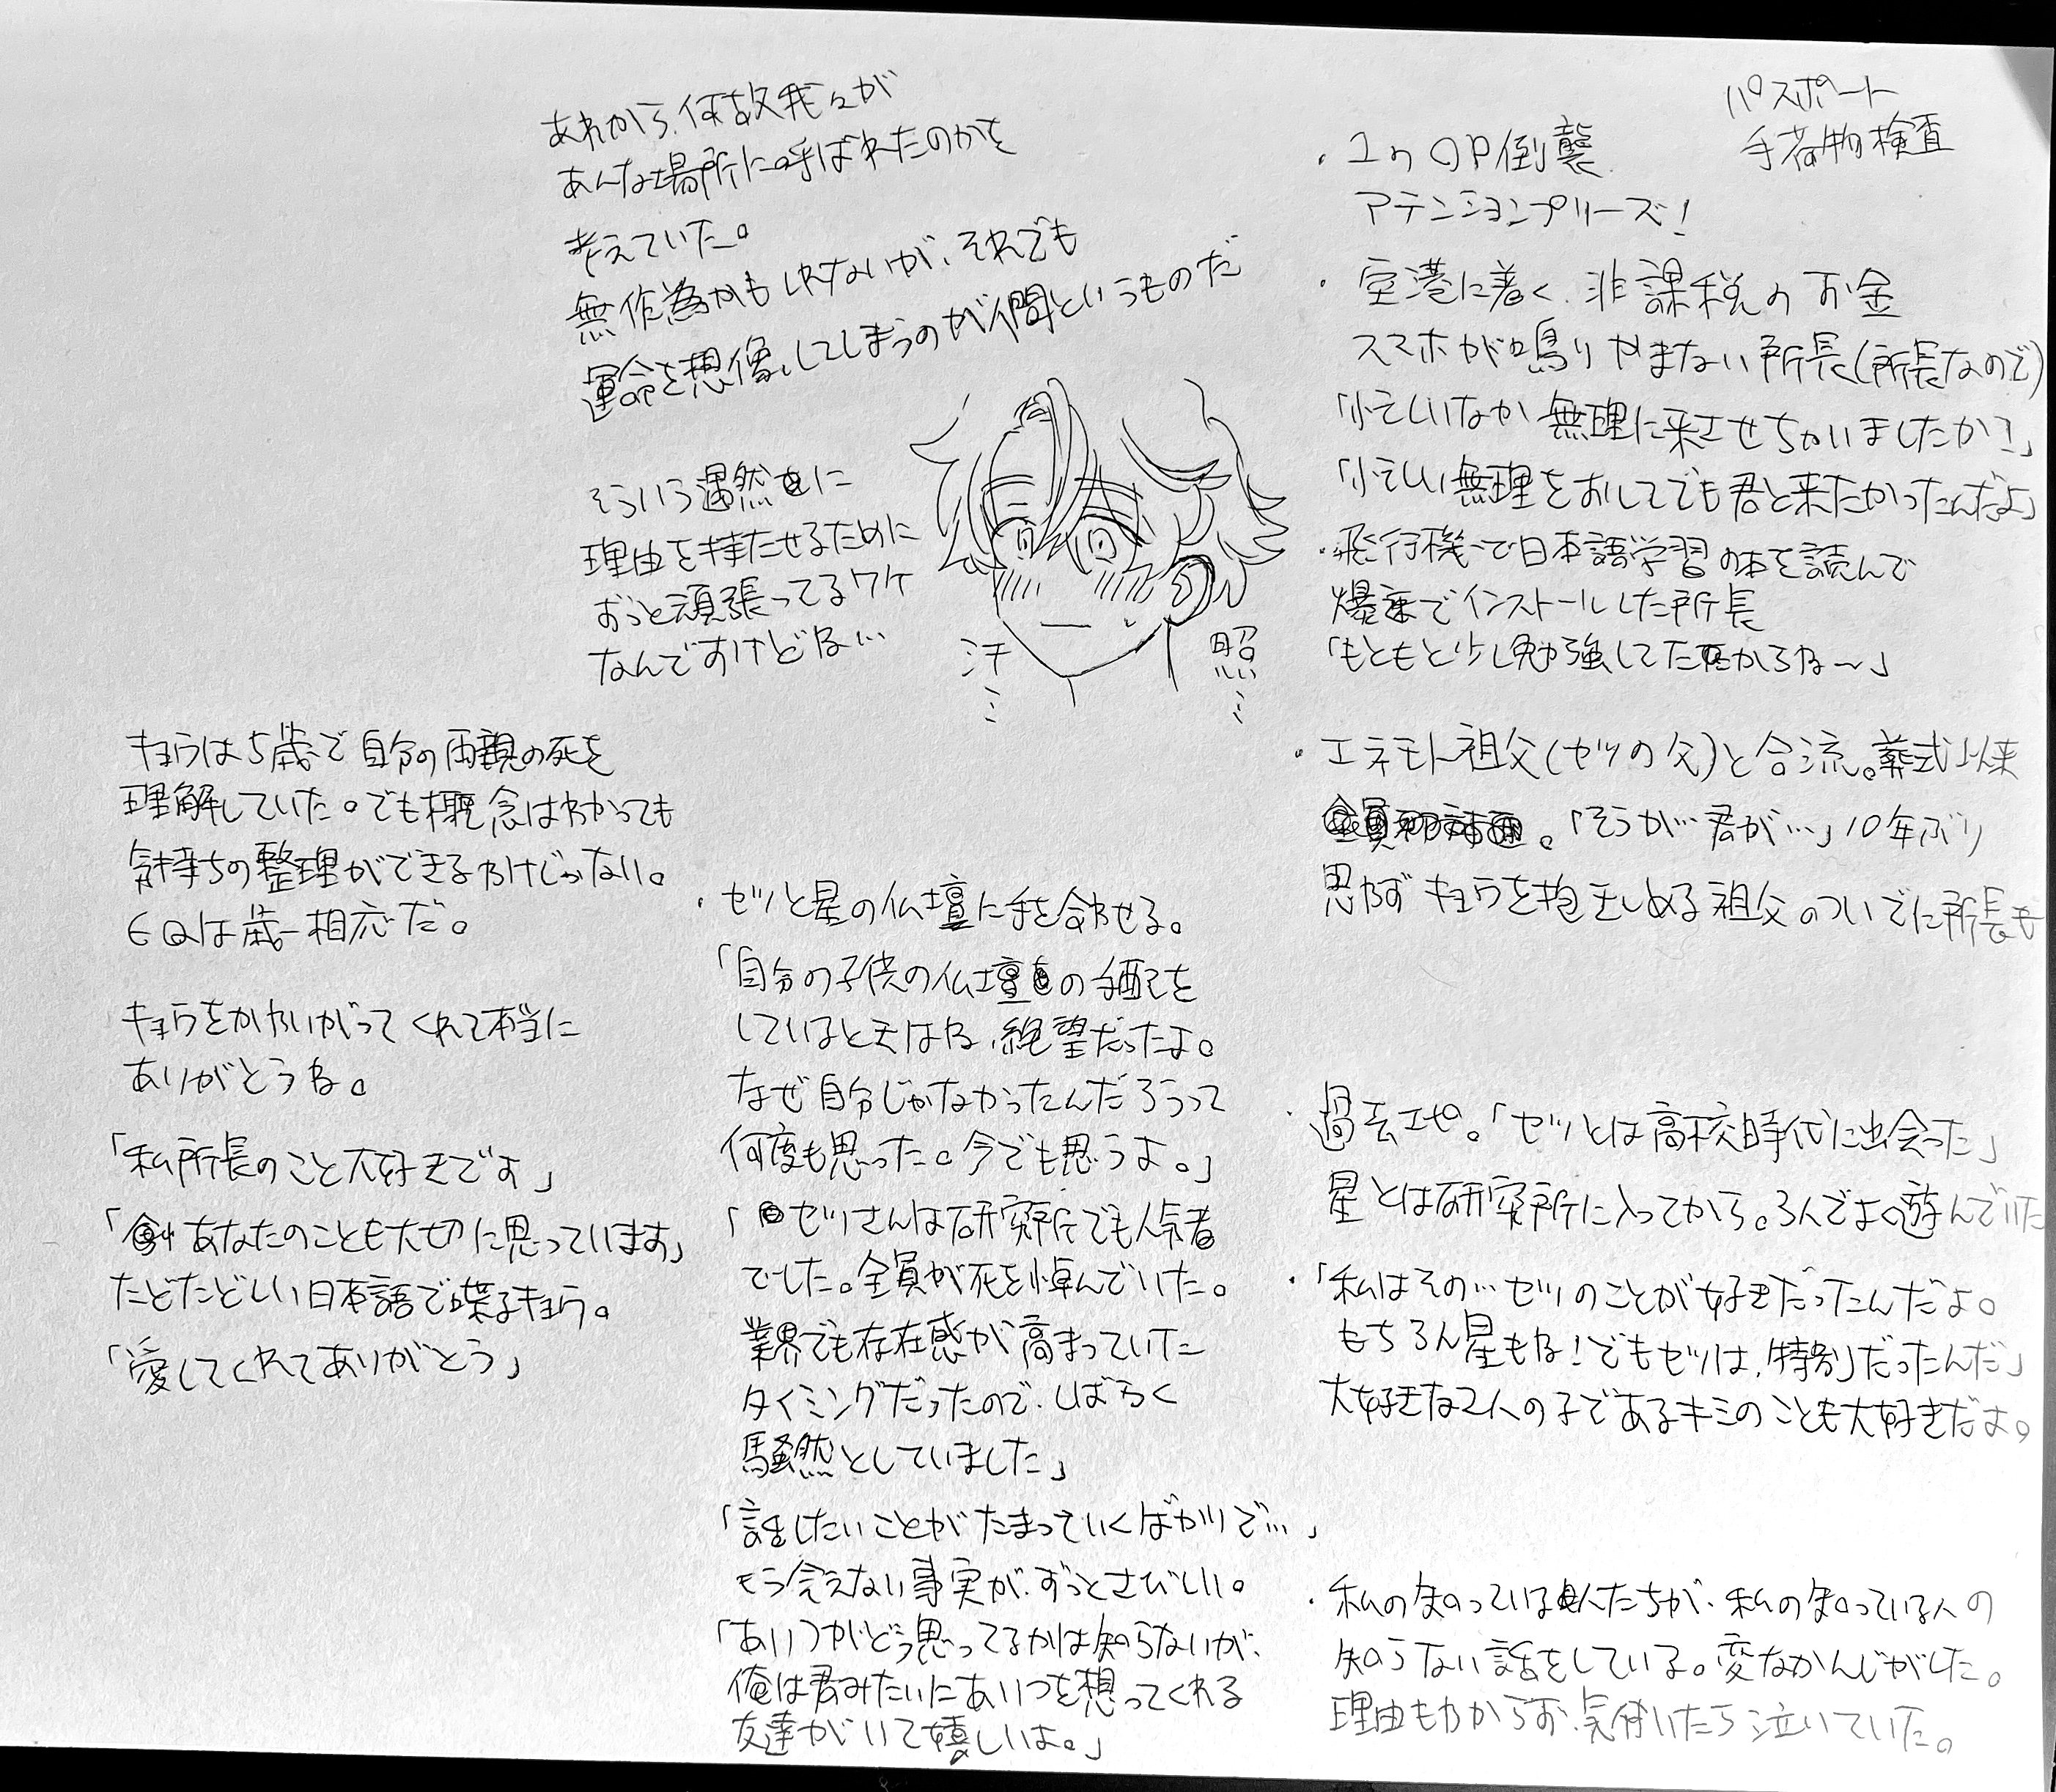 パスポート
手荷物検査
・1ヶ OP倒襲
アテンションプリーズ!
・空港に着く、非課税のお金
スマホが鳴りやまない所長(所長なので)
無理に来させちゃいましたか?」
無理をおしてでも君と来たかったんだよ」
・飛行機で日本語学習の本を読んで
爆速でインストールした所長
「もともと少し勉強してたからね〜」
・エネモト祖父(セツの父)と合流。葬式以来
。「そうか…君が…」10年ぶり
思わずキョウを抱きしめる祖父のついでに所長も
・過去エピ。「セツとは高校時代に出会った」
星とは研究所に入ってから。3人でよく遊んでいた
・「私はその…セツのことが好きだったんだよ。
もちろん星もね!でもセツは、特別だったんだ」
大好きな2人の子であるキミのことも大好きだよ。
・私の知っている人たちが、私の知っている人の
知らない話をしている。変なかんじがした。
理由もわからず、気付いたら泣いていた。
あれから、何故我々が
あんな場所に呼ばれたのかを
考えていた。
無作為かもしれないが、それでも
運命を想像してしまうのが人間というものだ
そういう偶然に
理由を持たせるために
ずっと頑張ってるワケ
なんですけどね…
汗…
照…
・セツと星の仏壇に手を合わせる。
「自分の子供の仏壇の手配を
しているときはね、絶望だったよ。
なぜ自分じゃなかったんだろうって
何度も思った。今でも思うよ。」
「セツさんは研究所でも人気者
でした。全員が死を悼んでいた。
業界でも存在感が高まっていた
タイミングだったので、しばらく
騒然としていました」
「話したいことがたまっていくばかりで…」
もう会えない事実が、ずっとさびしい。
「あいつがどう思ってるかは知らないが、
俺は君みたいにあいつを想ってくれる
友達がいて嬉しいよ。」
キョウは5歳で自分の両親の死を
理解していた。でも概念はわかっても
気持ちの整理ができるわけじゃない。
EQは歳相応だ。
キョウをかわいがってくれて本当に
ありがとうね。
「私所長のこと大好きですよ」
「あなたのことも大切に思っています」
たどたどしい日本語で喋るキョウ。
「愛してくれてありがとう」